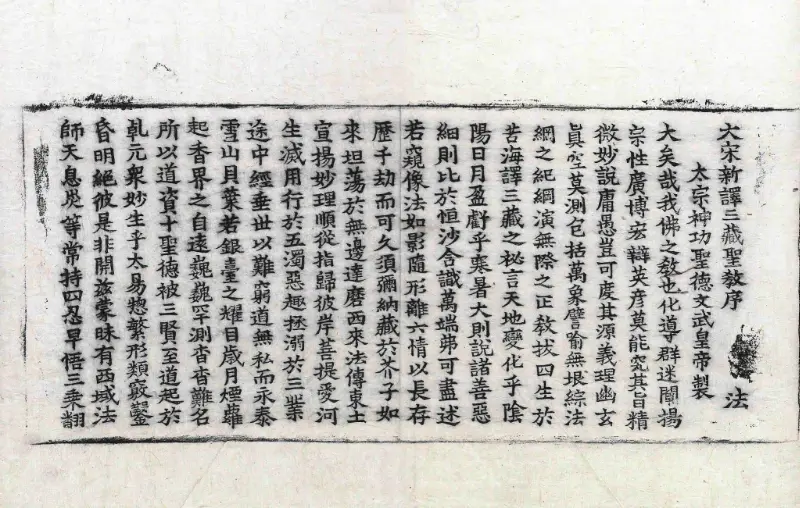 大宋新譯三藏聖教序 法
太宗神功聖德文武皇帝製
大矣哉我佛之教也化導群迷闡揚
宗性廣博宏辯英彦莫能究其旨精
微妙說庸愚豈可度其源義理幽玄
真空莫測包括萬象譬喻無垠綜法
綱之紀綱演無際之正教拔四生於
苦海譯三藏之祕言天地變化乎陰
陽日月盈虧乎寒暑大則說諸善惡
細則比於恒沙含識萬端弗可盡述
若窺像法如影隨形離六情以長存
歷千劫而可久須彌納藏於芥子如
來坦蕩於無邊達磨西來法傳東土
宣揚妙理順從指歸彼岸菩提愛河
生滅用行於五濁惡趣拯溺於三業
途中經垂世以難窮道無私而永泰
雪山貝葉若銀臺之耀目歲月煙蘿
起香界之自遠巍巍罕測杳杳難名
所以道資十聖德被三賢至道起於
乹元衆妙生乎太易惣繁形類竅鑿
昏明絕彼是非開兹蒙昧有西域法
師天息灾等常持四忍早悟三乘翻